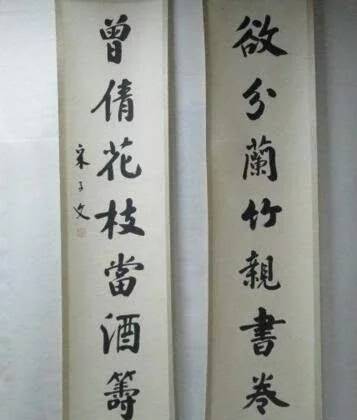 欲分蘭竹親書卷
曾倩花枝當酒籌
宋子文